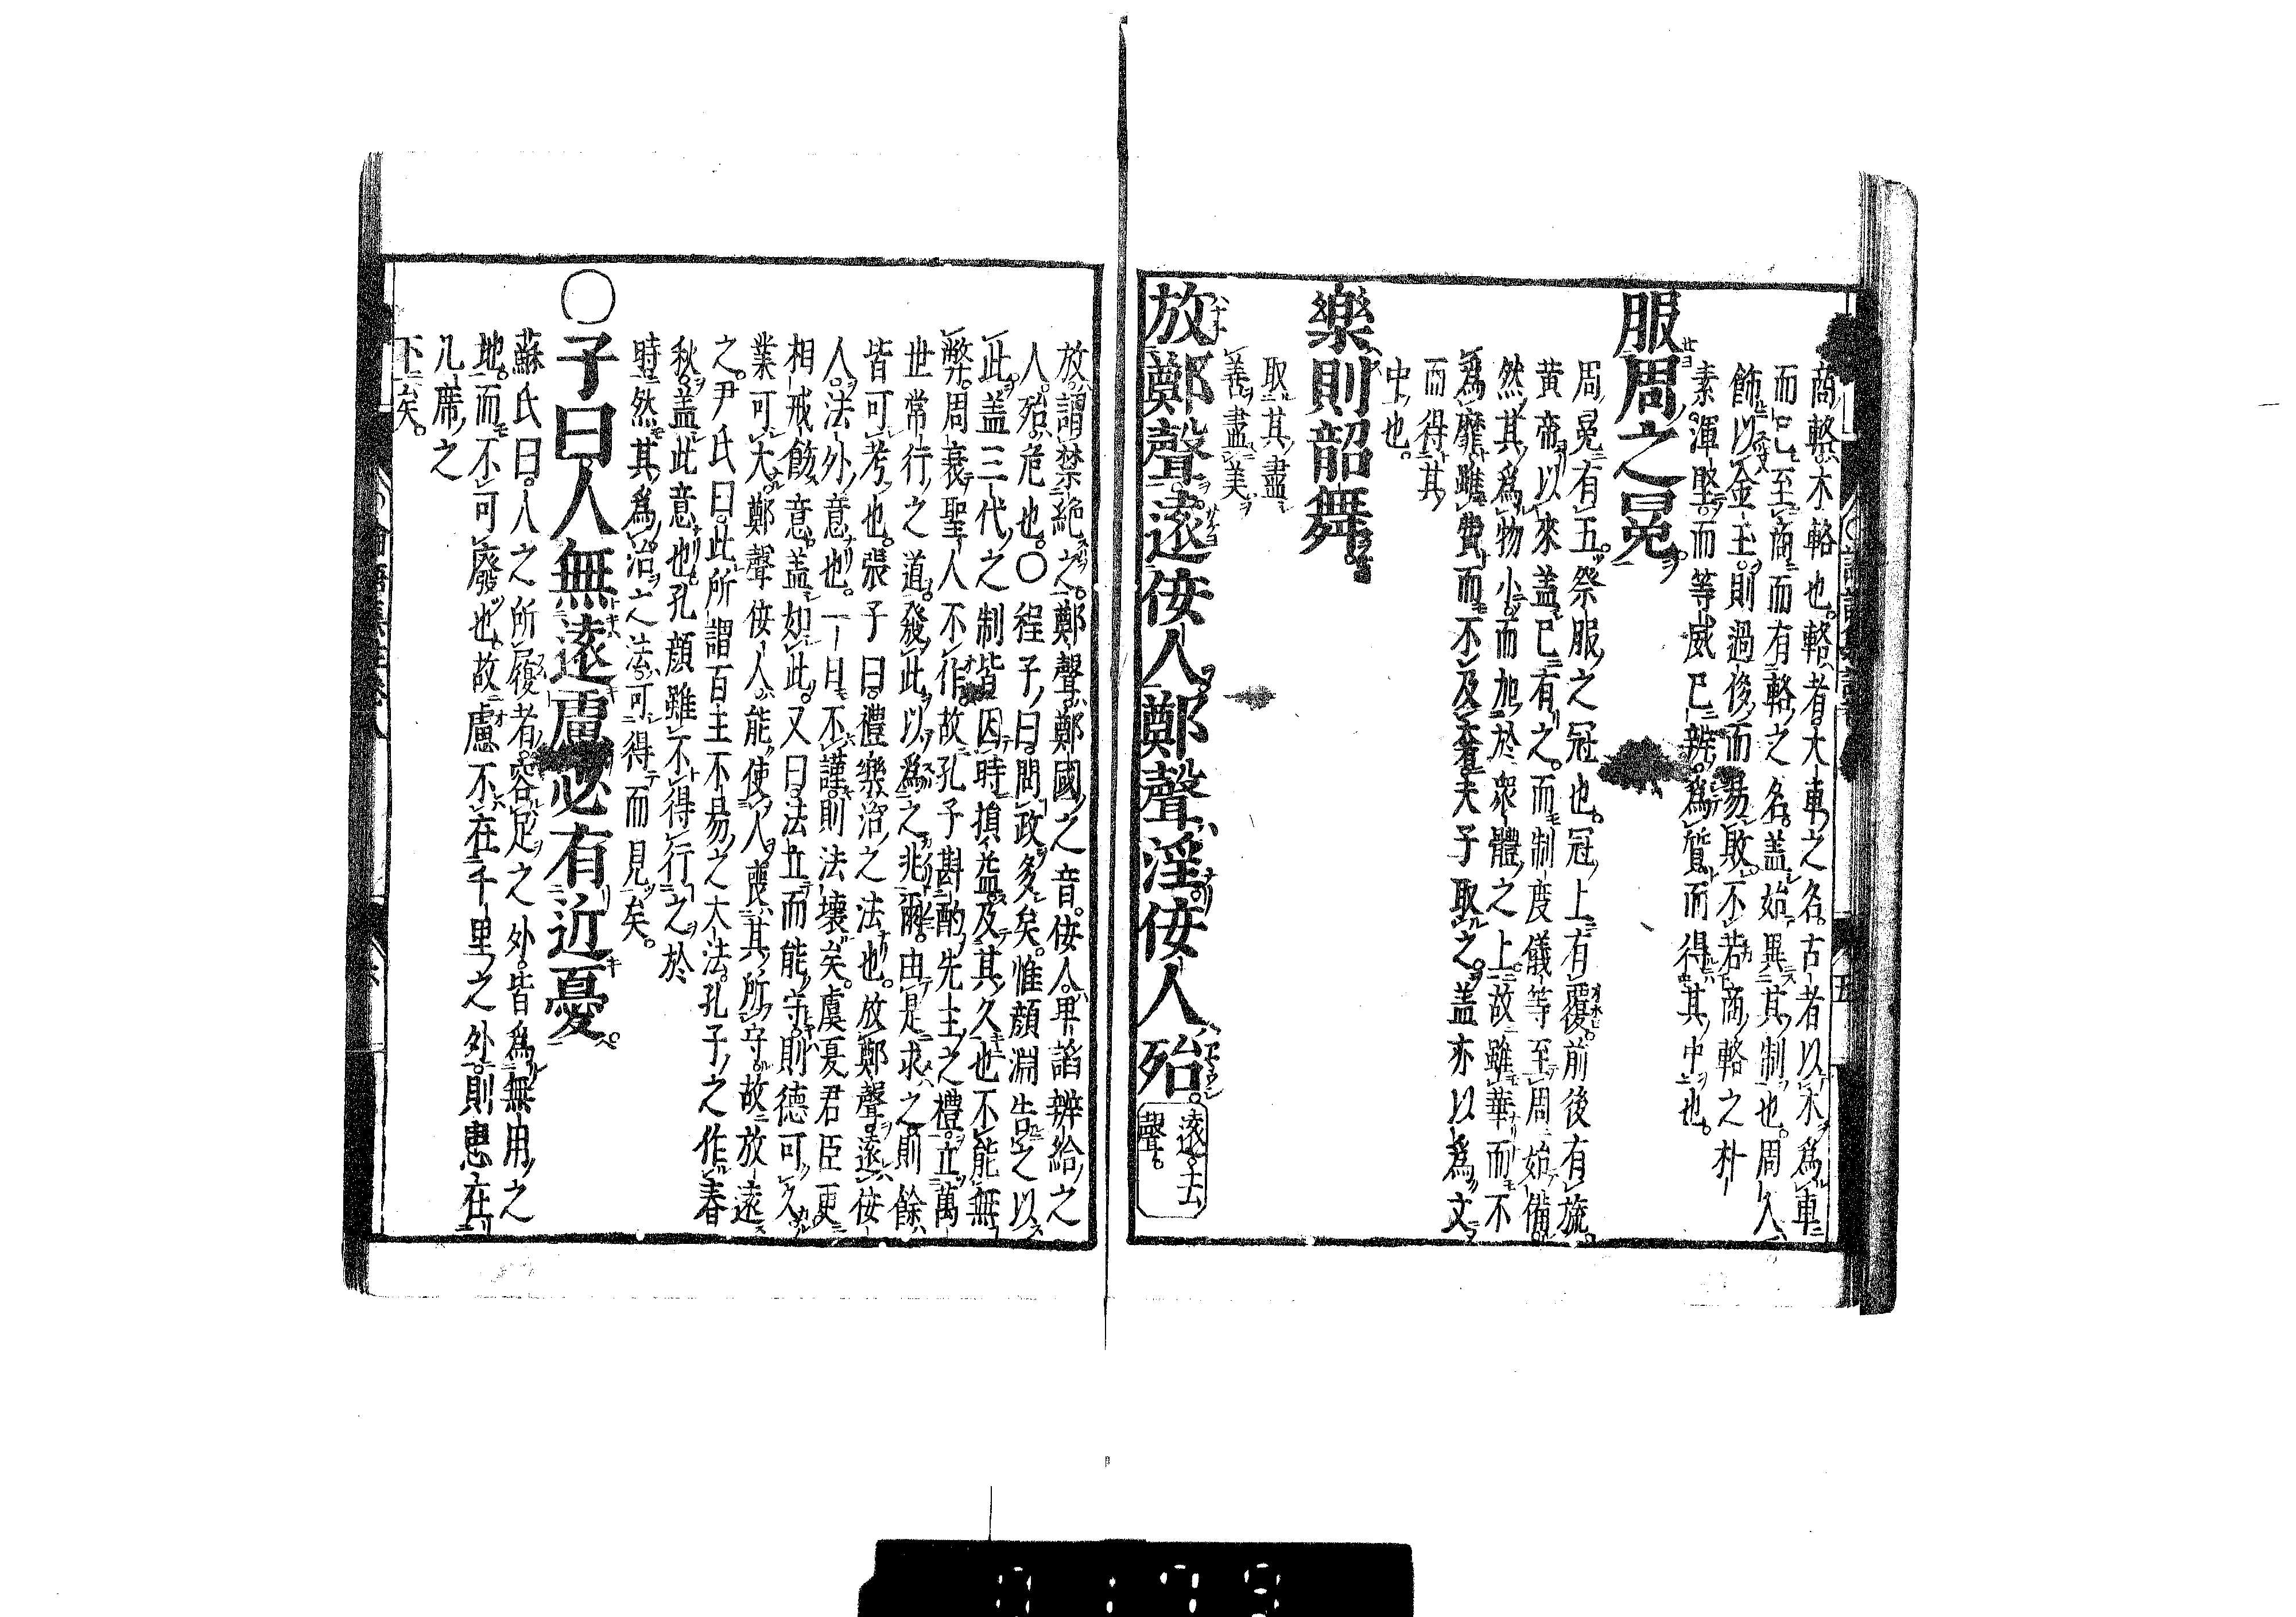 商輅木輅也。輅者。大車之名。古者以木爲車
而已至商而有輅之名。蓋始異其制也。周人
飾以金玉。則過侈而易敗不若商輅之朴
素渾堅。而等威已辨。爲質而得其中也。
服周之冕。
周冕有五。祭服之冠也。冠上有覆。前後有旒。
黄帝以來蓋已有之。而制度儀等至周始備。
然其爲物小。而加於衆體之上。故雖華而不
爲靡。雖費而不及奢。夫子取之。蓋亦以爲文
而得其
中也。
樂則韶舞。
取其盡
善盡美。
放鄭聲。遠佞人。鄭聲淫。佞人殆。
遠。去
聲。
放。謂禁絶之。鄭聲。鄭國之音。佞人。卑諂辨給之
人。殆。危也。○程子曰。問政多矣。惟顔淵告之以
此。蓋三代之制皆因時損益。及其久也不能無
弊。周衰聖人不作。故孔子斟酌先王之禮。立萬
世常行之道。發此以爲之兆爾。由是求之則餘
皆可考也。張子曰。禮樂治之法也。放鄭聲。遠佞
人。法外意也。一日不謹。則法壞矣。虞夏君臣更
相戒飭意。蓋如此。又曰。法立而能守。則德可久
業可大。鄭聲佞人。能使人喪其所守。故放遠
之。尹氏曰。此所謂百王不易之大法。孔子之作春
秋。蓋此意也孔顔雖不得行之於
時。然其爲治之法。可得而見矣。
○子曰人無遠慮必有近憂。
蘇氏曰。人之所履者。容足之外。皆爲無用之
地。而不可廢也。故慮不在千里之外。則患在
几席之
下矣。